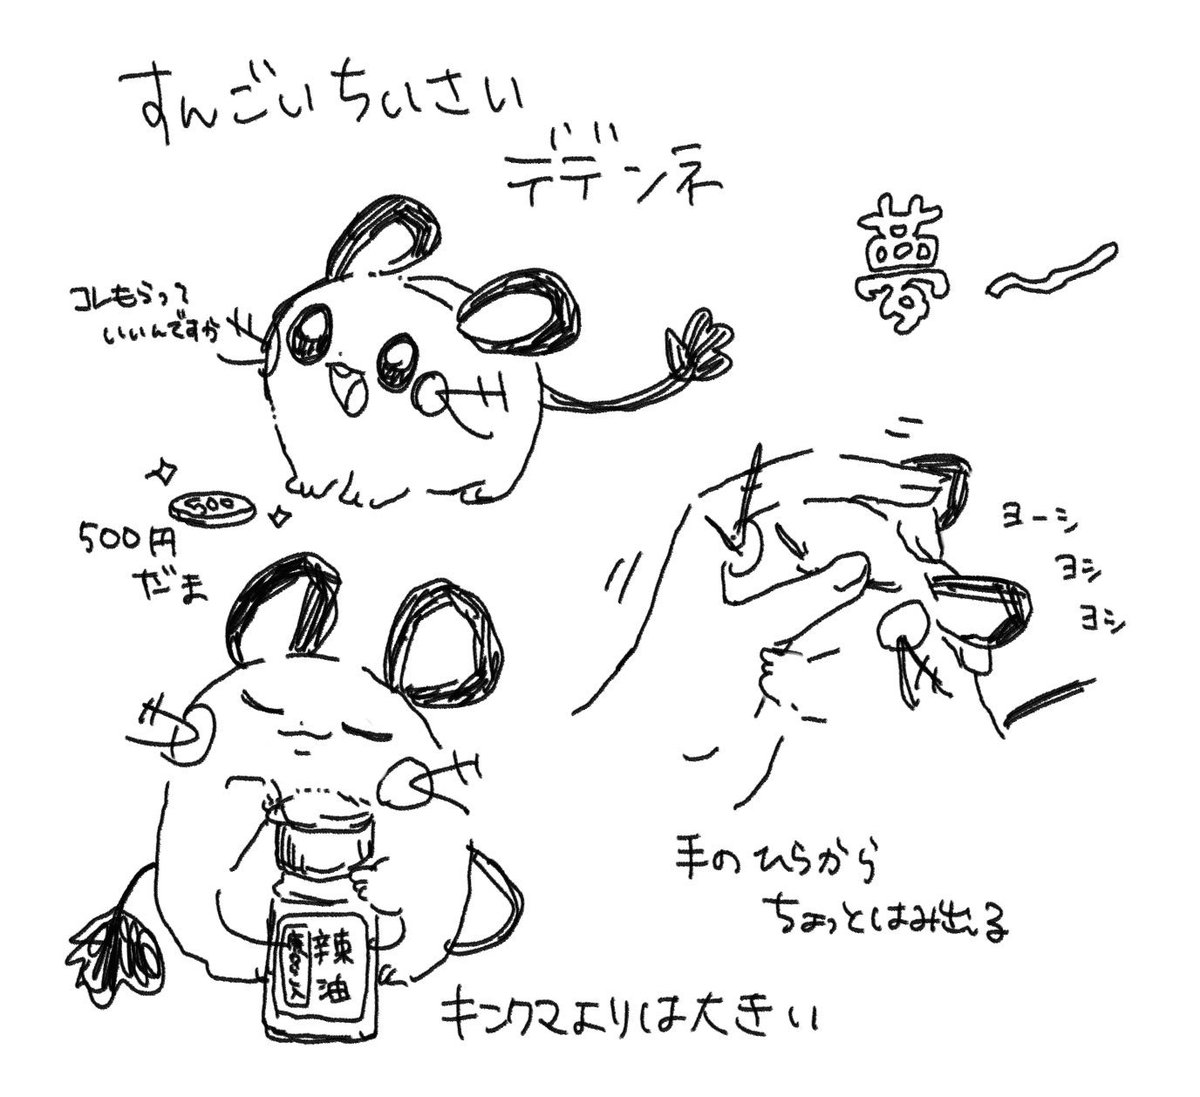 すんごいちいさい
デデンネ
夢〜
コレもらって
いいんですか
500
500円
だま
ヨーシ
ヨシ
ヨシ
手のひらから
ちょっとはみ出る
辣
油
キンクマよりは大きい